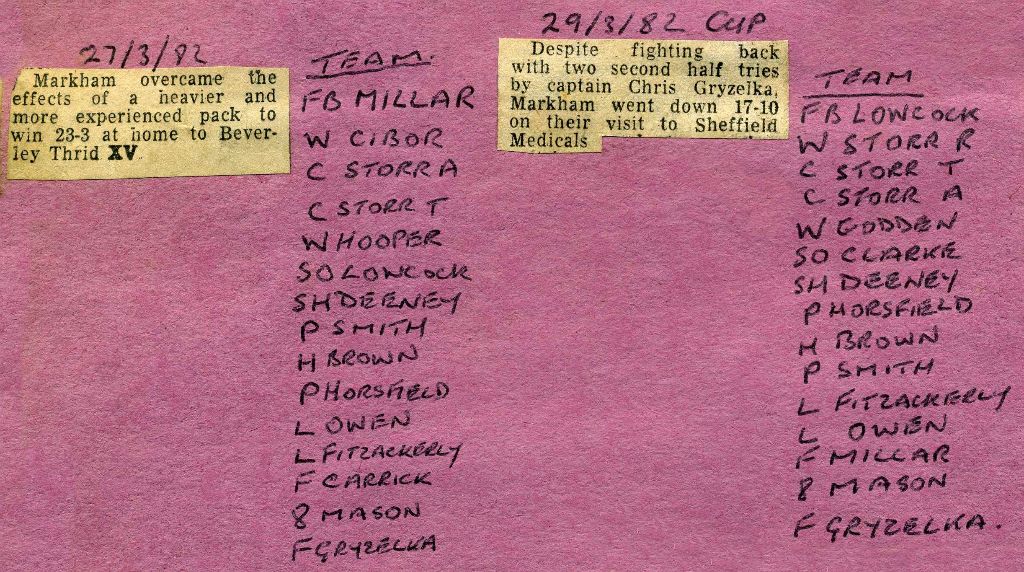 27/3/82
Markham overcame the
effects of a heavier and
more experienced pack to
win 23-3 at home to Bever-
ley Thrid XV
TEAM.
FB MILLAR
W CIBOR
C STORR A
C STORR T
W HOOPER
SO LOWCOCK
SH DEENEY
P SMITH
H BROWN
P HORSFIELD
L OWEN
L FITZACKERLY
F CARRICK
8 MASON
F GRYZELKA
29/3/82 CUP
Despite fighting back
with two second half tries
by captain Chris Gryzelka,
Markham went down 17-10
on their visit to Sheffield
Medicals
TEAM
FB LOWCOCK
W STORR R
C STORR T
C STORR A
W GODDEN
SO CLARKE
SH DEENEY
P HORSFIELD
H BROWN
P SMITH
L FITZACKERLY
L OWEN
F MILLAR
8 MASON
F GRYZELKA.